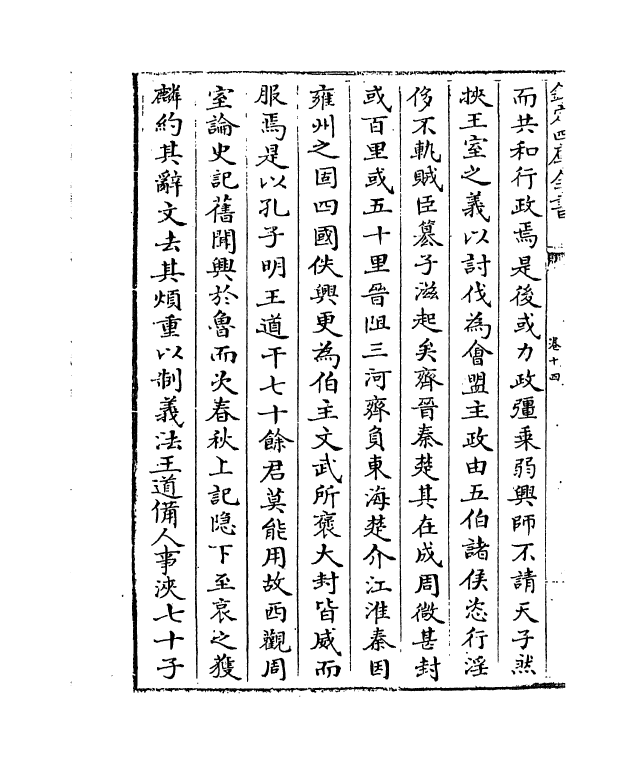 欽定四庫全書
卷十四
而共和行政焉是後或力政彊乗弱興師不請天子然
挾王室之義以討伐為㑹盟主政由五伯諸侯恣行淫
侈不軌賊臣簒子滋起矣齊晉秦楚其在成周微甚封
或百里或五十里晉阻三河齊負東海楚介江淮秦因
雍州之固四國佚興更為伯主文武所襃大封皆威而
服焉是以孔子明王道干七十餘君莫能用故西觀周
室論史記舊聞興於魯而次春秋上記隐下至哀之獲
麟約其辭文去其煩重以制義法王道備人事浹七十子